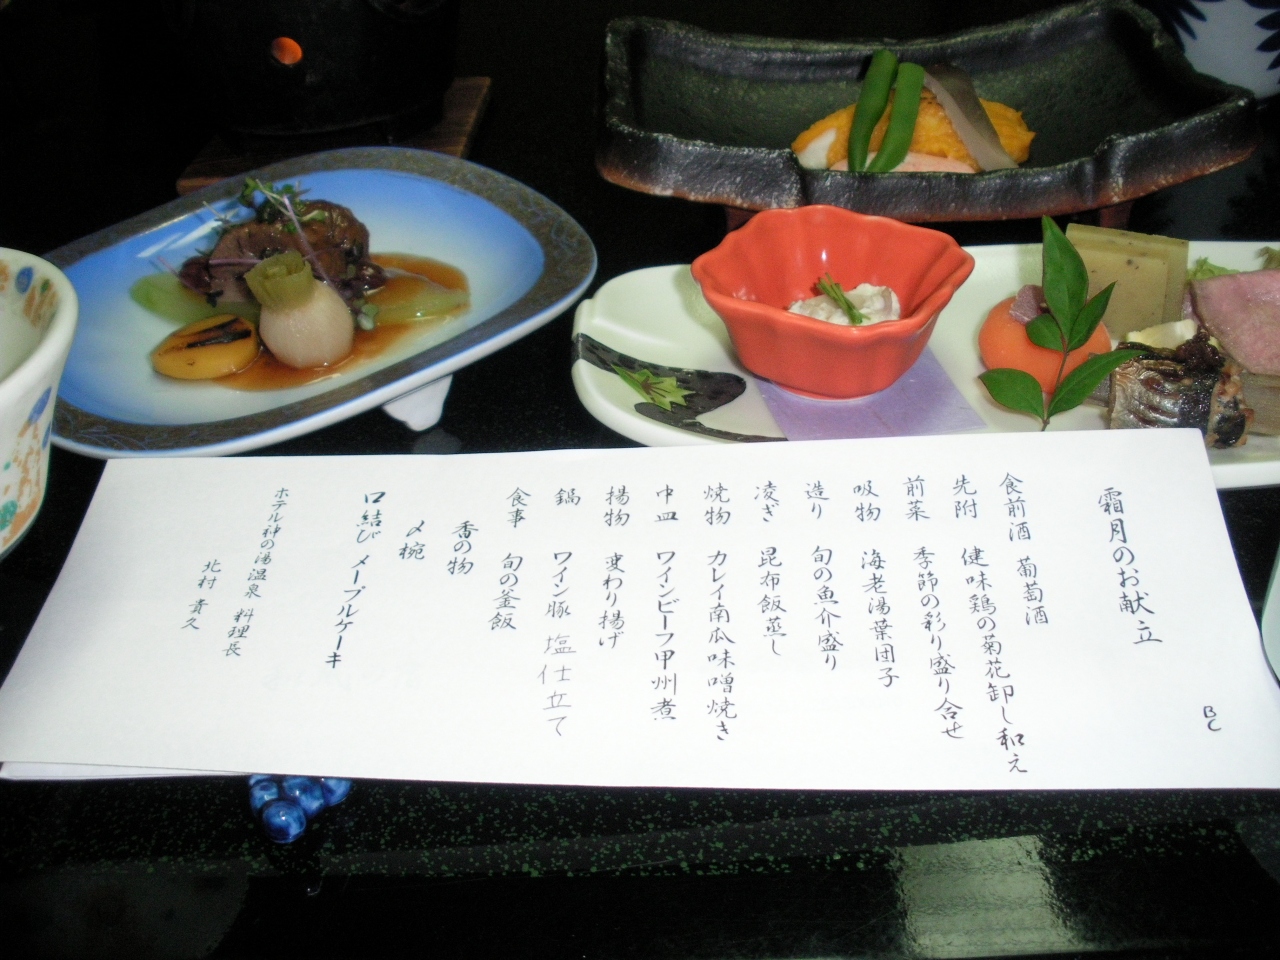 霜月のお献立
BC
食前酒 葡萄酒
先附 健味鶏の菊花卸し和え
前菜 季節の彩り盛り合せ
吸物 海老湯葉団子
造り 旬の魚介盛り
凌ぎ 昆布飯蒸し
焼物 カレイ南瓜味噌焼き
中皿 ワインビーフ甲州煮
揚物 変わり揚げ
鍋 ワイン豚 塩仕立て
食事 旬の釜飯
香の物
〆椀
口結び メープルケーキ
ホテル神の湯温泉 料理長
北村 貴久